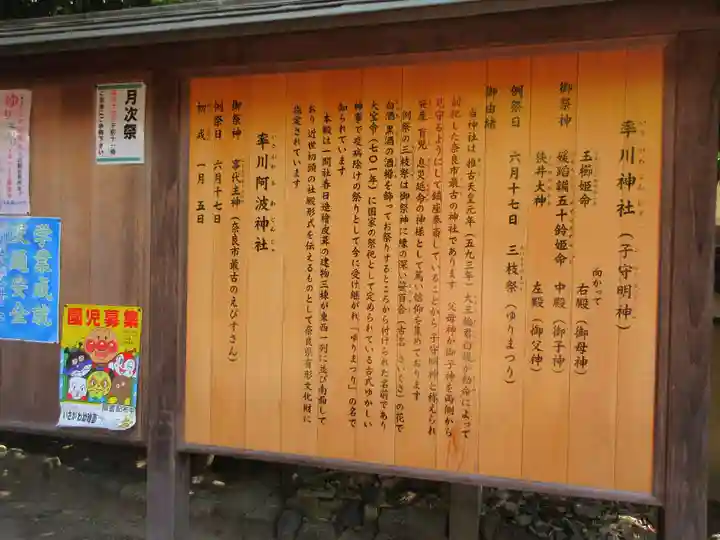 率川神社（子守明神）
いさがわじんじゃ
御祭神
玉櫛姫命
向かって
右殿（御母神）
媛蹈韛五十鈴姫命　中殿（御子神）
狭井大神　左殿（御父神）
例祭日　六月十七日　三枝祭（ゆりまつり）
御由緒
当神社は推古天皇元年（五九三年）大三輪君白堤が勅命によって
創祀した奈良市最古の神社であります　父母神が御子神を両側から
見守るようにして鎮座奉斎していることから子守明神と称えられ
安産　育児　息災延命の神様として篤い信仰を集めております
例祭の三枝祭は御祭神に縁の深い笹百合（古名　さいくさ）の花で
白酒　黒酒の酒罇を飾ってお祭りするところから付けられた名前であり
大宝令（七〇一年）に国家の祭祀として定められている古式ゆかしい
神事で疫病除けの祭りとして今に受け継がれ「ゆりまつり」の名で
知られています
本殿は一間社春日造檜皮葺の建物三棟が東西一列に並び南面して
おり近世初頭の社殿形式を伝えるものとして奈良県有形文化財に
指定されています
率川阿波神社
いさがわあわじんじゃ
御祭神　事代主神（奈良市最古のえびすさん）
例祭日　六月十七日
初戎　一月　五日
月次祭
学業成就
交通安全
園児募集
いさがわ幼稚園